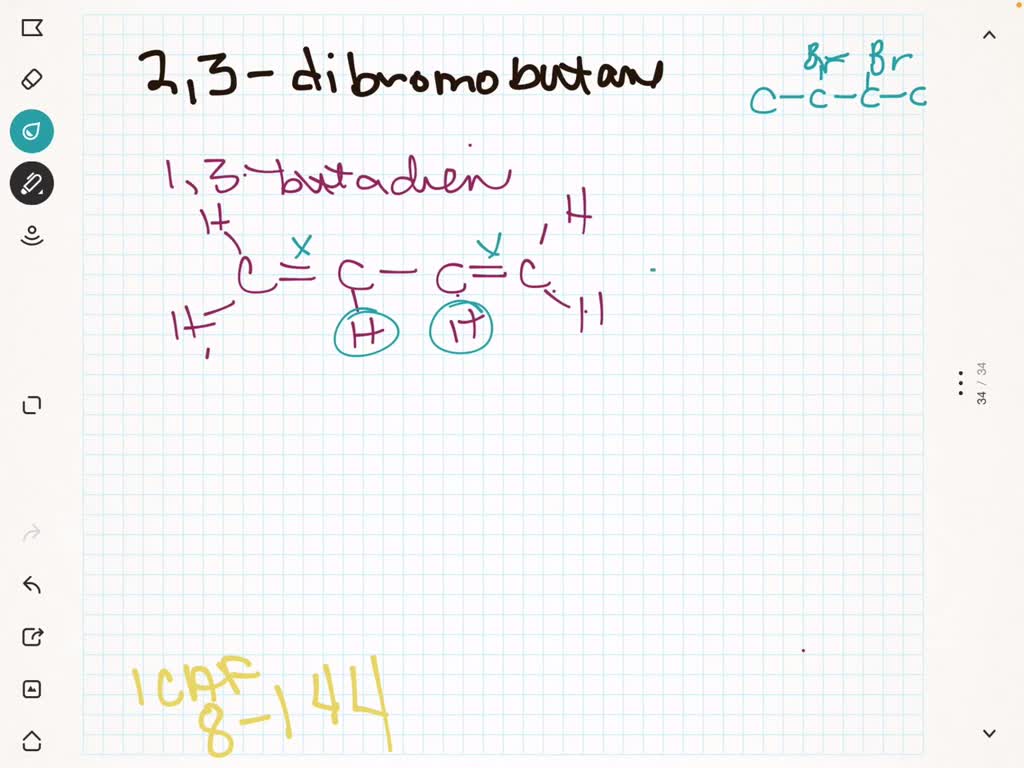 2,3-dibromobutan
Br Br
C-C-C-C
1,3-butadien
H H
C=C-C=C
H H H H
1CAF
8-144
34 / 34